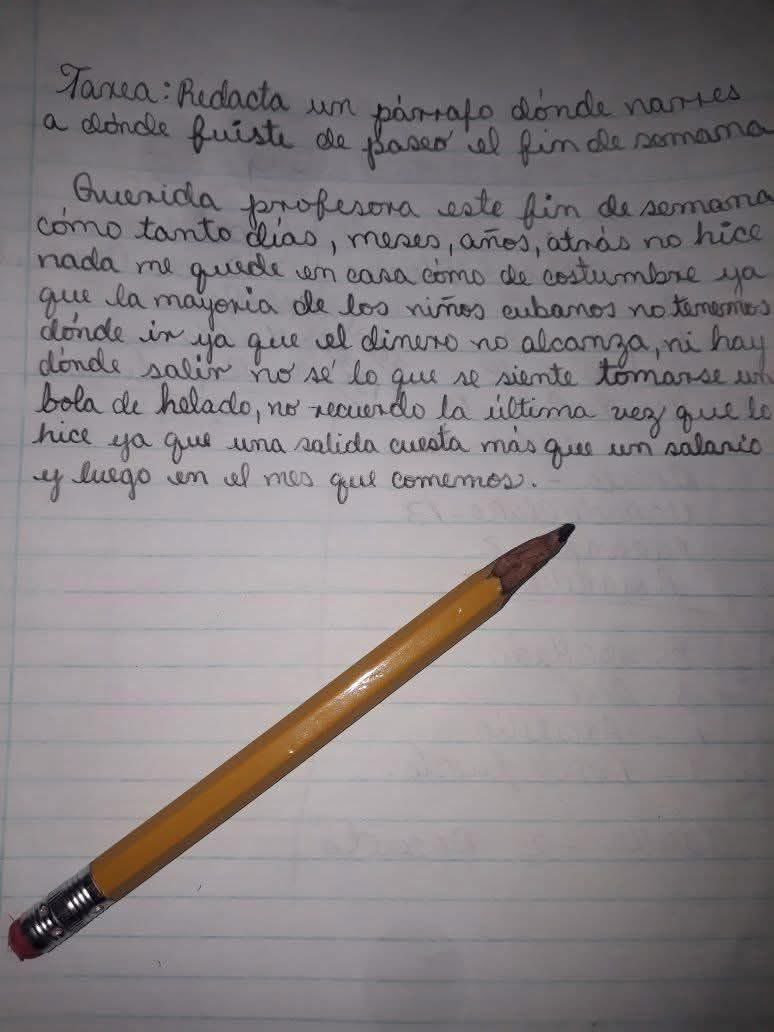 Tarea: Redacta un párrafo dónde narres
a dónde fuiste de paseo el fin de semana
Querida profesora este fin de semana
cómo tanto días, meses, años, atrás no hice
nada me quede en casa cómo de costumbre ya
que la mayoria de los niños cubanos no tenemos
dónde ir ya que el dinero no alcanza, ni hay
dónde salir no sé lo que se siente tomarse un
bola de helado, no recuerdo la última vez que lo
hice ya que una salida cuesta más que un salario
y luego en el mes que comemos.